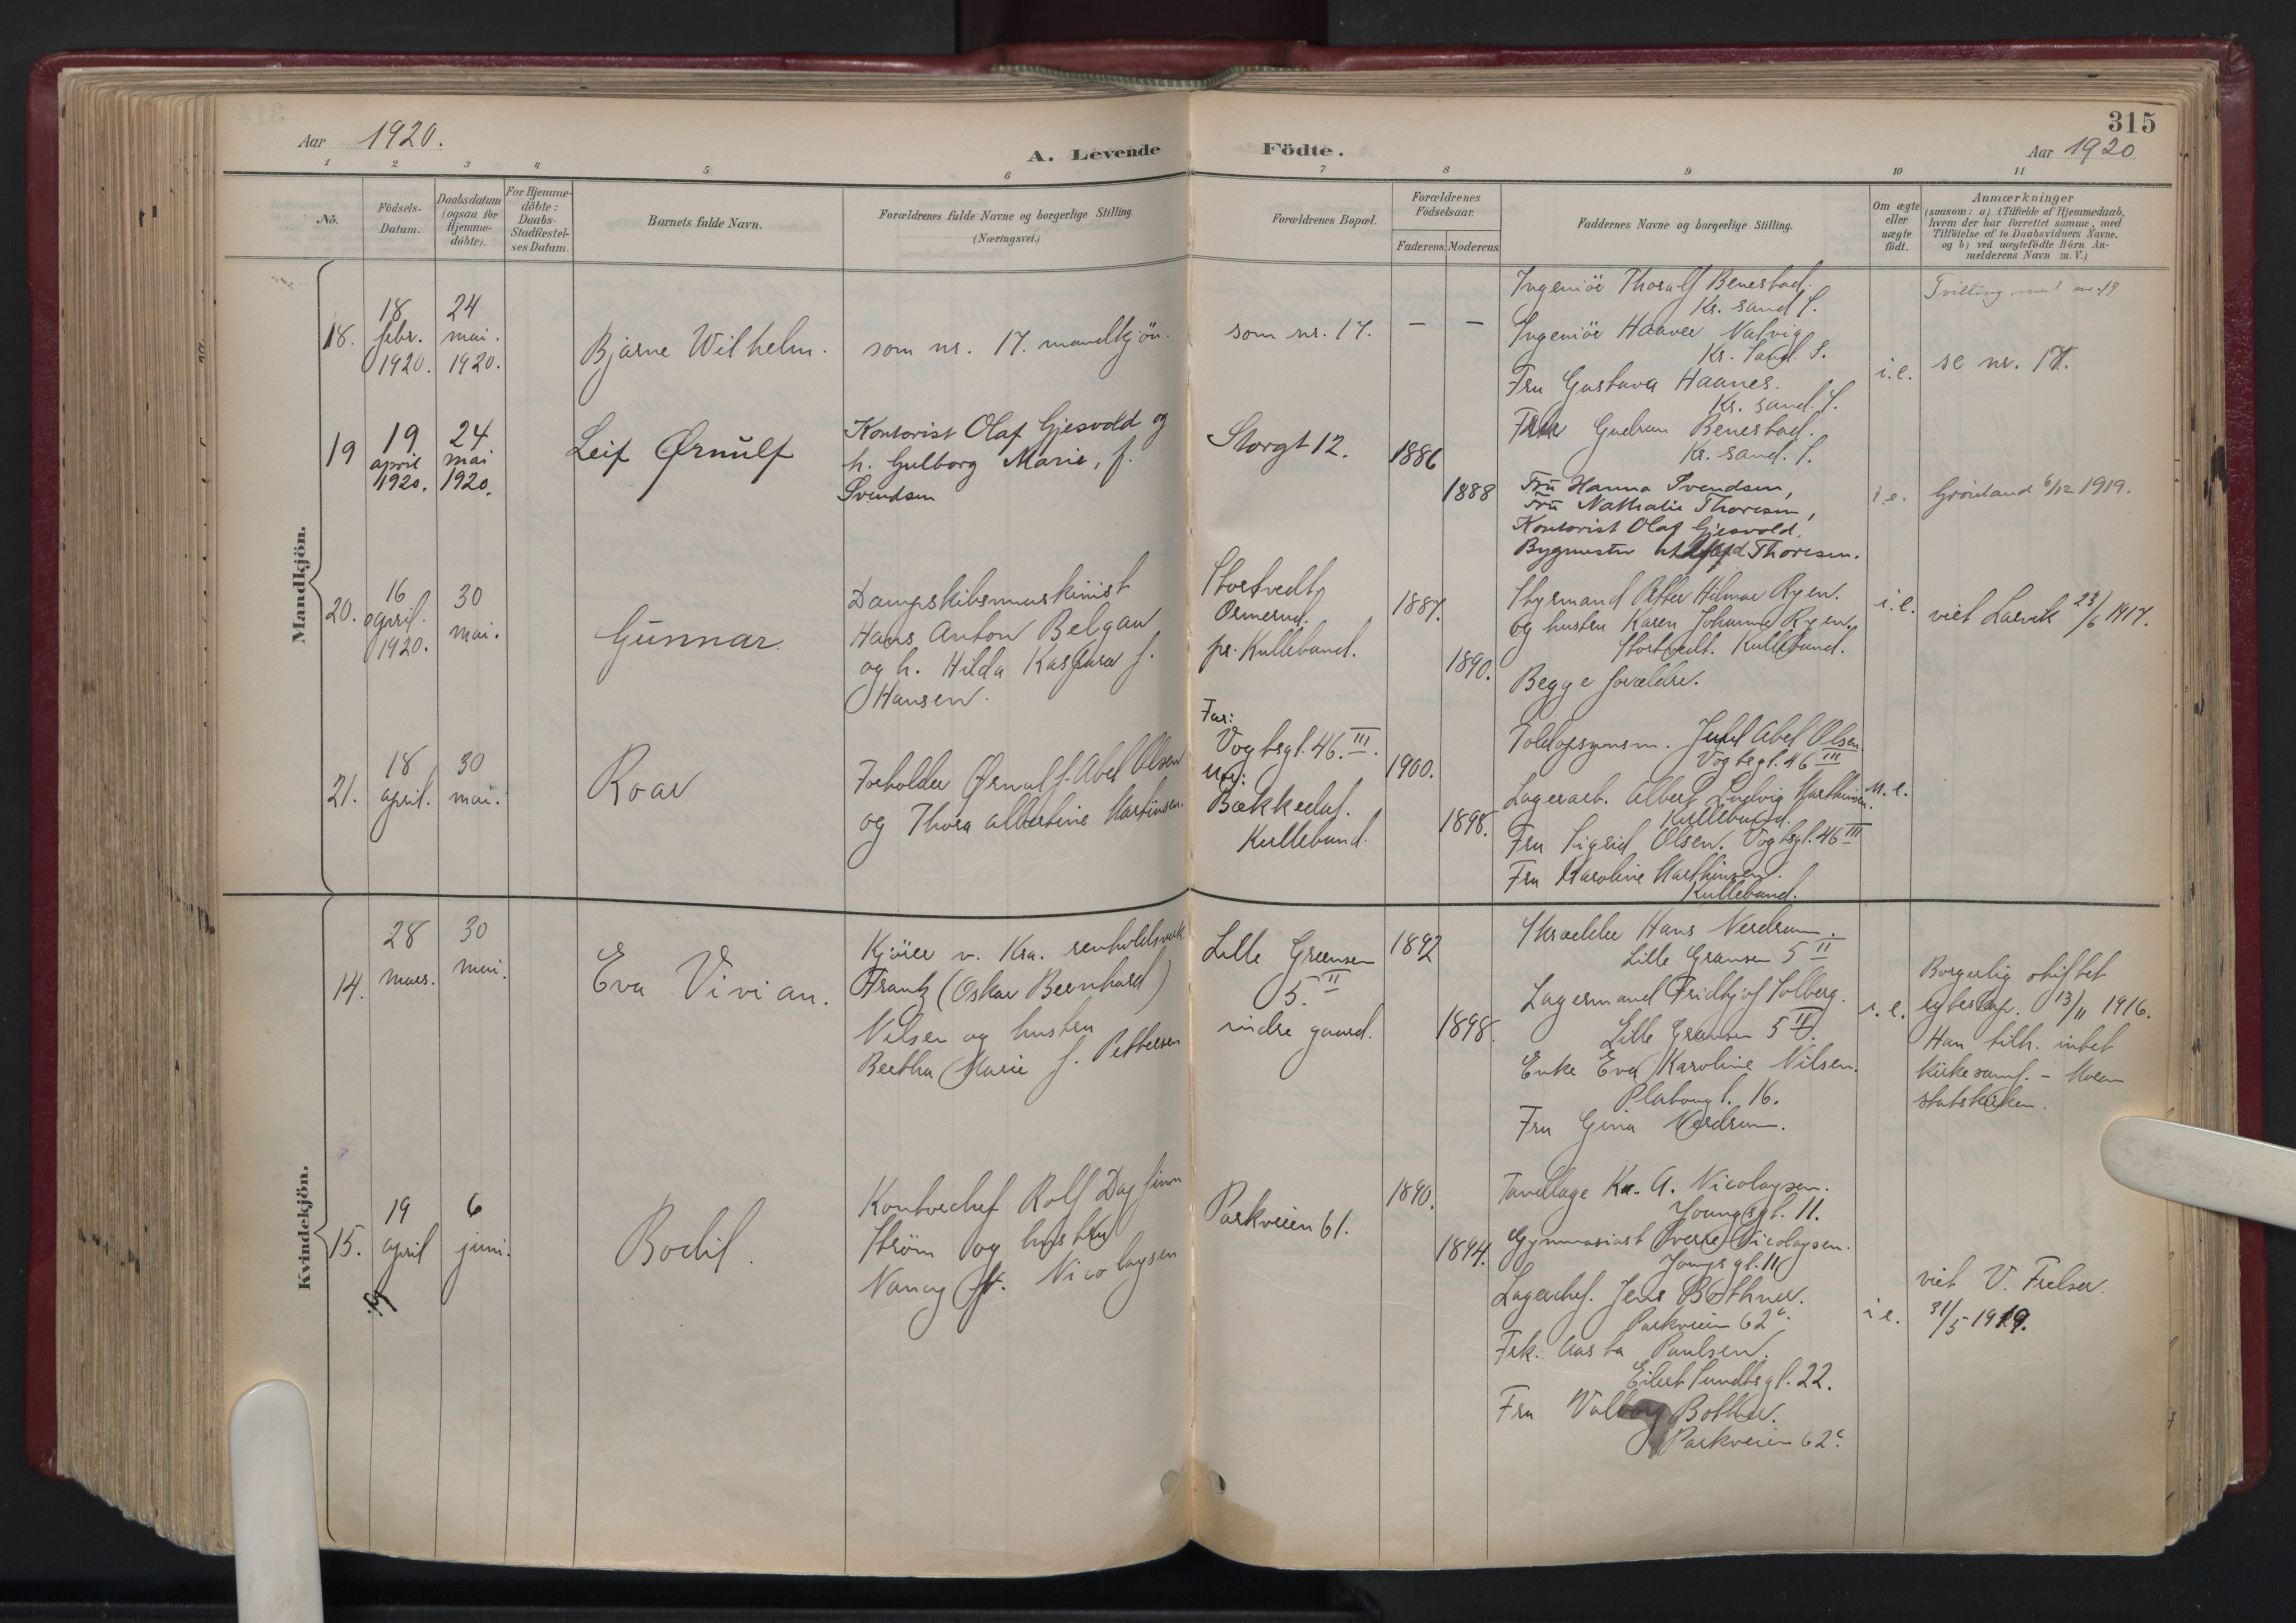 315
Aar 1920.
A. Levende
Födte.
Aar 1920
1 2 3 4 5 6 7 8 9 10 11
No.
Födsels-
Datum.
Daabsdatum
(ogsaa for
Hjemme-
döbte).
For Hjemme-
döbte:
Daabs-
Stadfæstel-
ses Datum.
Barnets fulde Navn.
Forældrenes fulde Navne og borgerlige Stilling.
(Næringsvei.)
Forældrenes Bopæl.
Forældrenes
Födselsaar.
Faderens. Moderens.
Faddernes Navne og borgerlige Stilling.
Om ægte
eller
uægte
födt.
Anmærkninger
(saasom: a) i Tilfælde af Hjemmedaab,
hvem der har forrettet samme, med
Tilföielse af to Daabsvidners Navne,
og b) ved uægtefödte Börn An-
melderens Navn m. V.)
Mandkjön.
18.
18
febr.
1920.
24
mai.
1920.
Bjarne Wilhelm.
som nr. 17. mandkjön.
som nr. 17.
— —
Ingeniör Thoralf Benestad.
Kr. sand S.
Ingeniör Haaver Natvig
Kr. Sand. S.
Fru Gustava Haanes.
Kr. sand. S.
Gudrun Benestad.
Kr. sand. S.
i.e.
Tvilling med nr. 17
se nr. 17.
19
19
april
1920.
24
mai
1920.
Leif Ørnulf
Kontorist Olaf Gjesvold og
h. Gulborg Marie, f.
Svendsen
Storgt 12.
1886
1888
Fru Hanna Svendsen,
Fru Nathalie Thoresen,
Kontorist Olaf Gjesvold,
Bygmester Thoresen.
i.e.
Grönland 6/12 1919.
20.
16
april.
1920.
30
mai.
Gunnar.
Dampskibsmaskinist
Hans Anton Belgau
og h. Hilda Kaspara f.
Hansen.
Stortvedt,
Ormerud.
pr. Kullebund.
1887.
1890.
Styrmand Hilmar Ryen.
og hustru Karen Johanne Ryen.
Stortvedt. Kullebund.
Begge forældre.
i.e.
viet Larvik 23/6 1917.
21.
18
april.
30
mai.
Roar
Forholder Ørnulf f. Abel Olsen
og Thora Albertine Martinsen.
Far:
Vogtsgt. 46. III.
Mor:
Bækkedal.
Kullebund.
1900.
1898.
Toldopsynsm. Abel Olsen.
Vogtsgt. 46 III
Lagerarb. Albert Ludvig Marthinsen.
Kullebund.
Fru Sigrid Olsen. Vogtsgt. 46 III
Fru Karoline Marthinsen.
Kullebund.
u.e.
Kvindekjön.
14.
28
mars.
30
mai.
Eva Vivian.
Kjörer v. Kra. renholdsverk
Frantz (Oskar Bernhard)
Nilsen og hustru
Bertha Marie f. Pettersen
Lille Grensen
5. II
indre gaard.
1892
1898.
Skrædder Hans Nerdrum.
Lille Grensen 5 II
Lagermand Fridtjof Solberg.
Lille Grensen 5 II.
Enke Eva Karoline Nilsen.
Platougt. 16.
Fru Gina Nerdrum.
i.e.
Borgerlig stiftet
egteskap. 13/11 1916.
Han tilh. intet
kirkesamf. – Moren
statskirken.
15.
19
april
6
juni.
Bodil.
Kontorchef Rolf Dag Finn
Strøm og hustru
Nancy f. Nicolaysen
Parkveien 61.
1890.
1894.
Tandlæge Kr. A. Nicolaysen.
Youngsgt. 11.
Gymnasiast Sverre Nicolaysen.
Youngsgt. 11
Lagerchef. Jens Bothner.
Parkveien 62 c.
Frk. Aasta Paulsen.
Eilert Sundtsgt. 22.
Fru Valborg Bothner.
Parkveien 62 c.
i e.
viet V. Frelser.
31/5 1919.